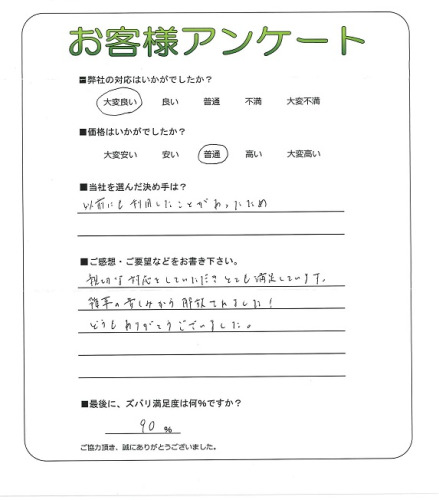 お客様アンケート
■弊社の対応はいかがでしたか？
大変良い 良い 普通 不満 大変不満
■価格はいかがでしたか？
大変安い 安い 普通 高い 大変高い
■当社を選んだ決め手は？
以前にも利用したことがあったため
■ご感想・ご要望などをお書き下さい。
親切な対応をしていただきとても満足しています。
雑草の苦しみから解放されました！
どうもありがとうございました。
■最後に、ズバリ満足度は何％ですか？
90 %
ご協力頂き、誠にありがとうございました。